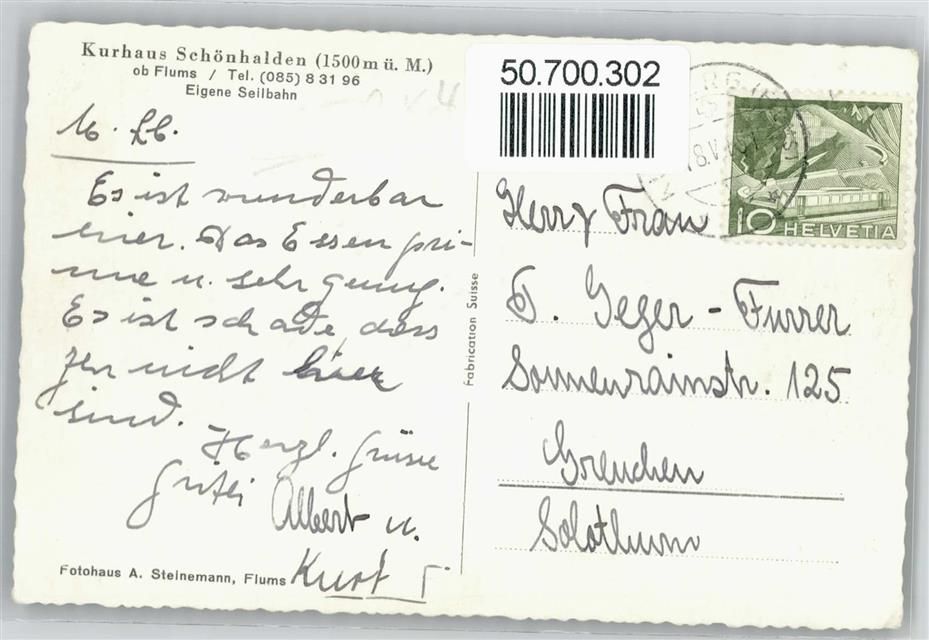 Kurhaus Schönhalden (1500 m ü. M.)
ob Flums / Tel. (085) 8 31 96
Eigene Seilbahn
50.700.302
10 HELVETIA
M. Lb.
Es ist wunderbar
hier. Das Essen pri-
ma u. sehr genug.
Es ist schade dass
Ihr nicht hier
sind.
Herzl. Grüsse
Albert u.
Kurt
Fotohaus A. Steinemann, Flums
Fabrication Suisse
Herr & Frau
Geger - Furrer
Sonnenrainstr. 125
Grenchen
Solothurn